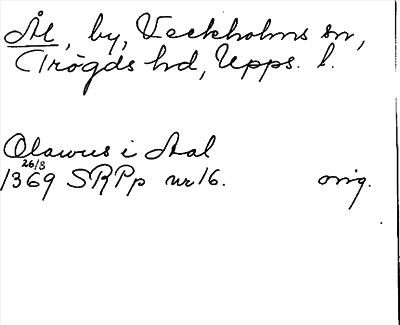 Ål, by, Veckholms sn,
Trögds hd, Upps. l.
Olawus i Aal
26/3
1369 SRPp nr 16. orig.